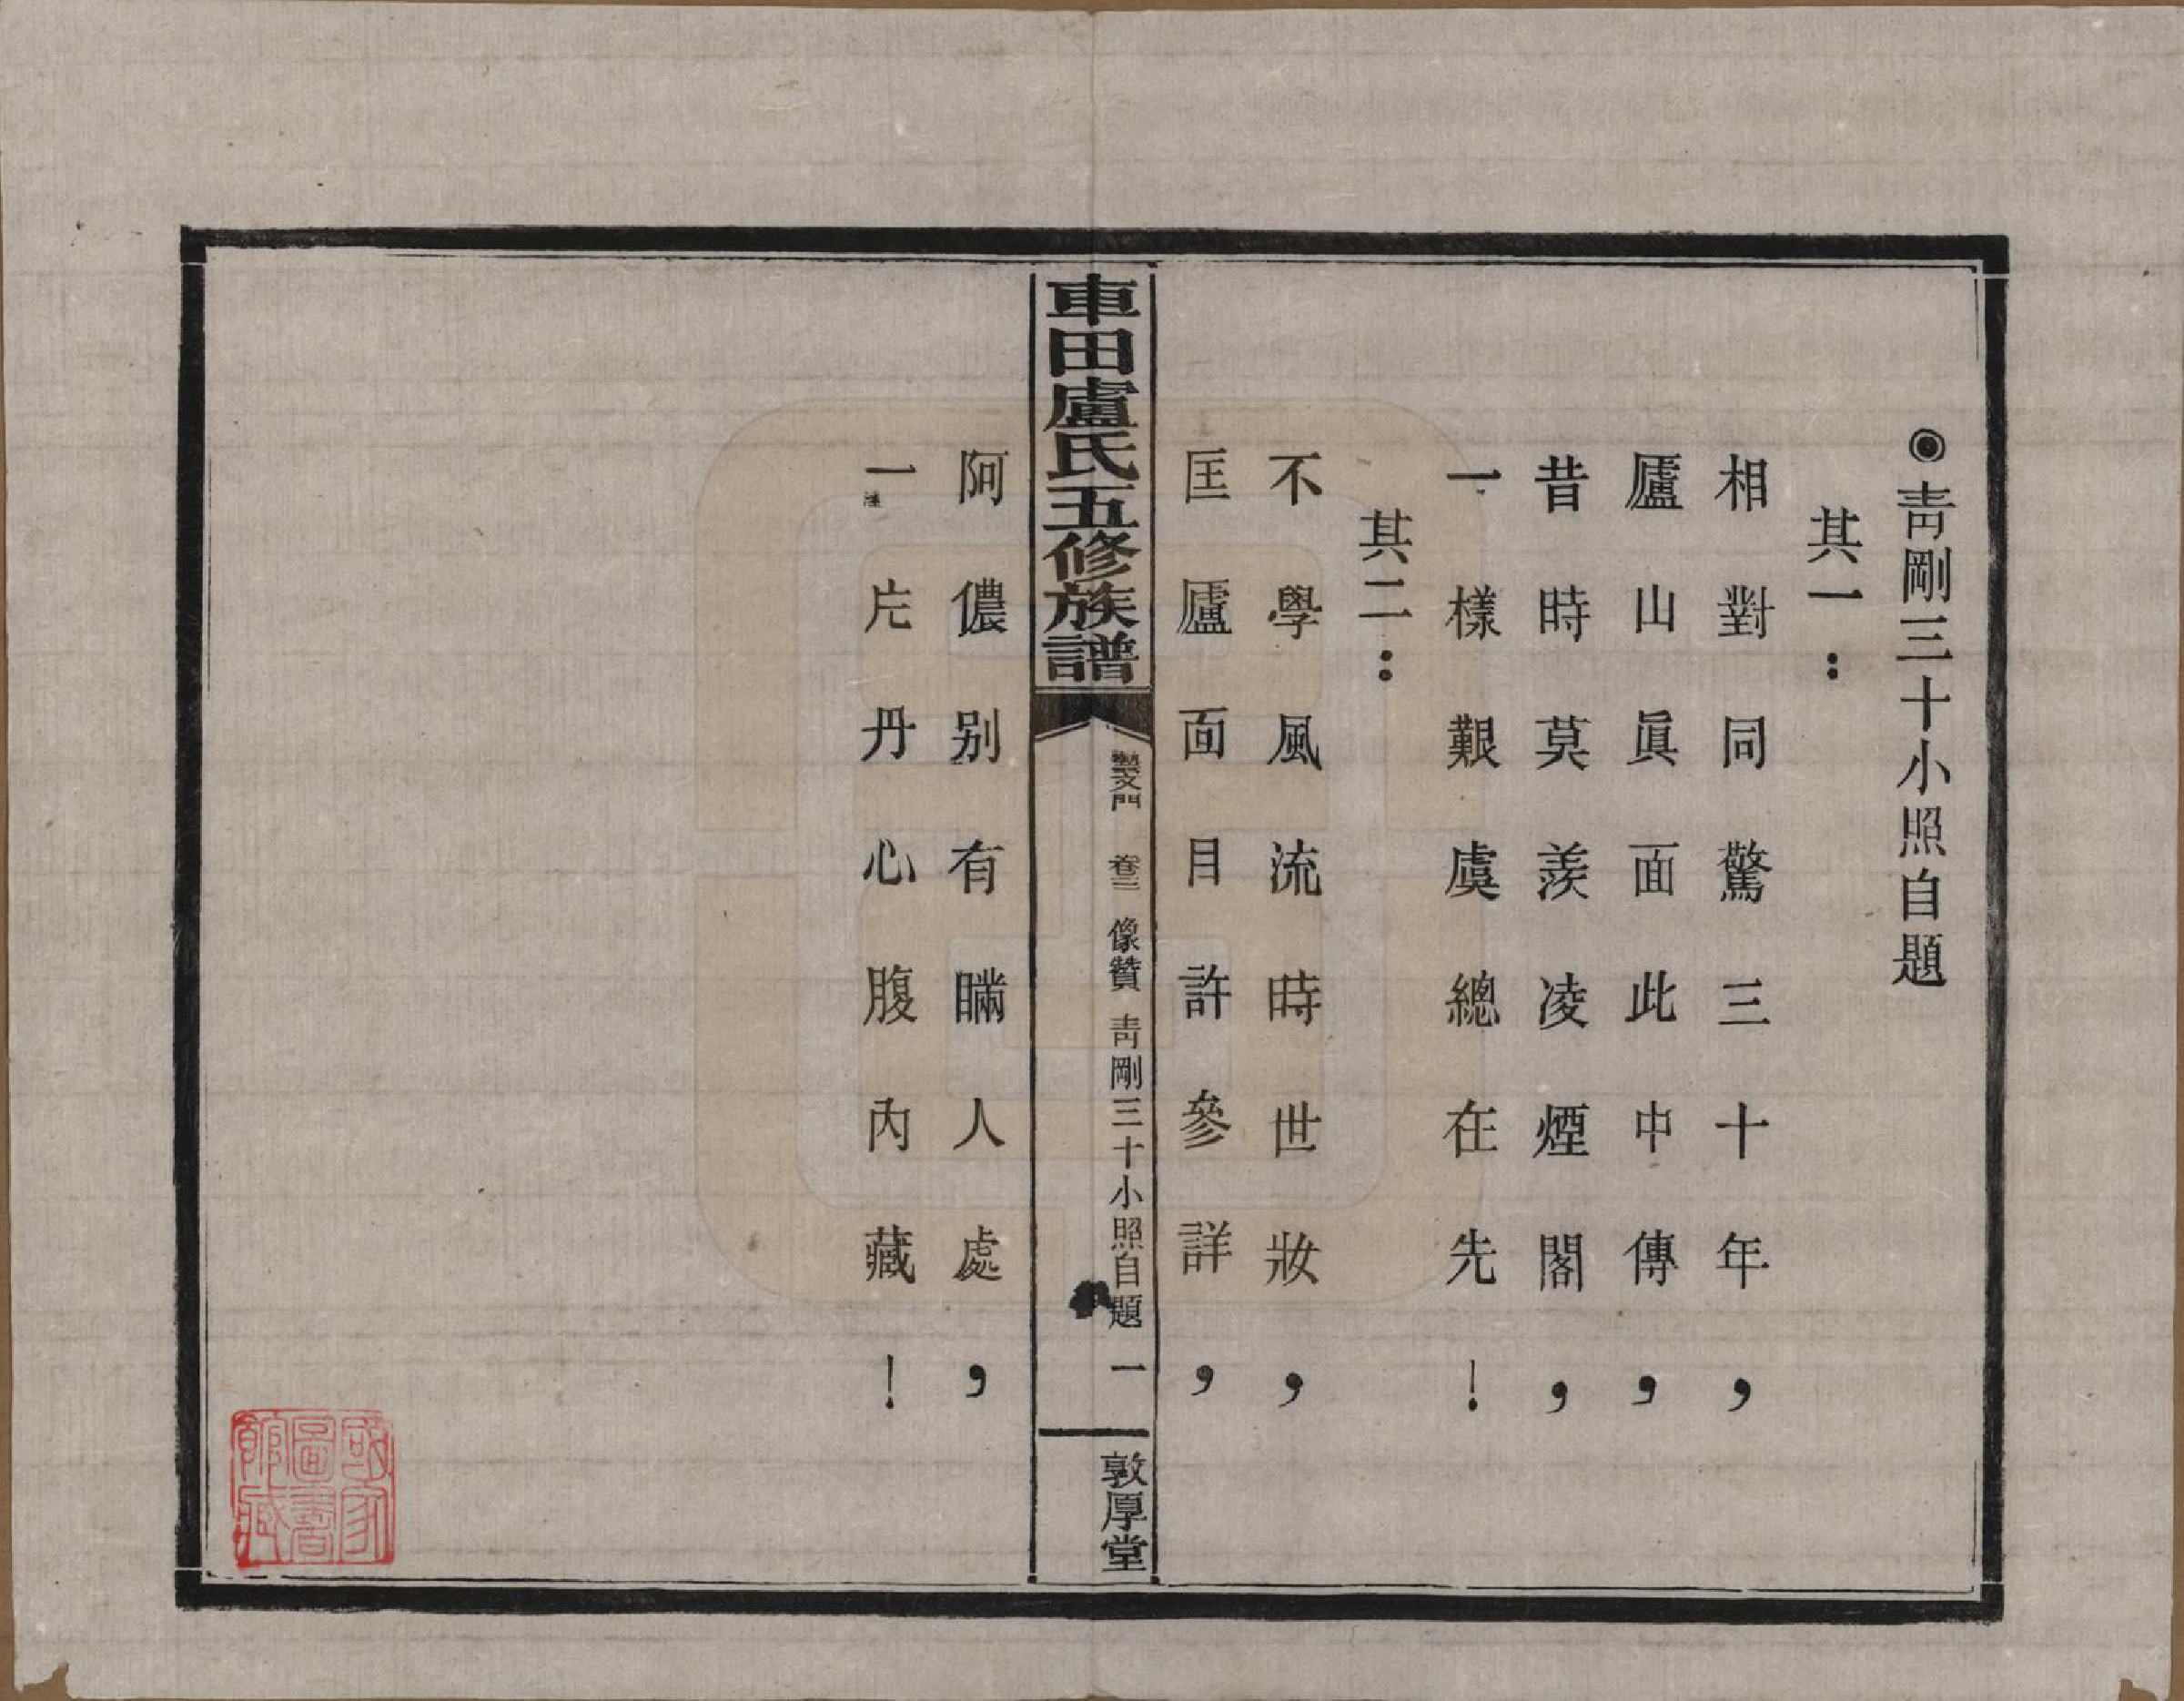 ◉靑剛三十小照自題
其一：
相對同驚三十年，
廬山眞面此中傳，
昔時莫羨凌煙閣，
一樣艱虞總在先！
其二：
不學風流時世妝，
匡廬面目許參詳，
車田盧氏五修族譜
藝文門　卷三　像贊　靑剛三十小照自題　一
敦厚堂
阿儂别有瞞人處，
一片丹心腹內藏！
國家
圖書
館藏